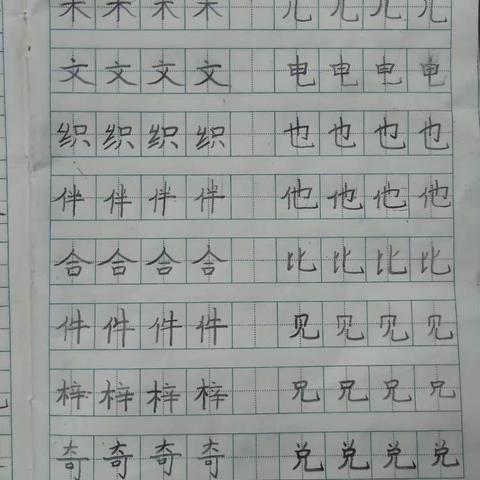 文 文 文 文 电 电 电 电
织 织 织 织 也 也 也 也
伴 伴 伴 伴 他 他 他 他
合 合 合 合 比 比 比 比
件 件 件 件 见 见 见 见
梓 梓 梓 梓 兄 兄 兄 兄
奇 奇 奇 奇 兑 兑 兑 兑